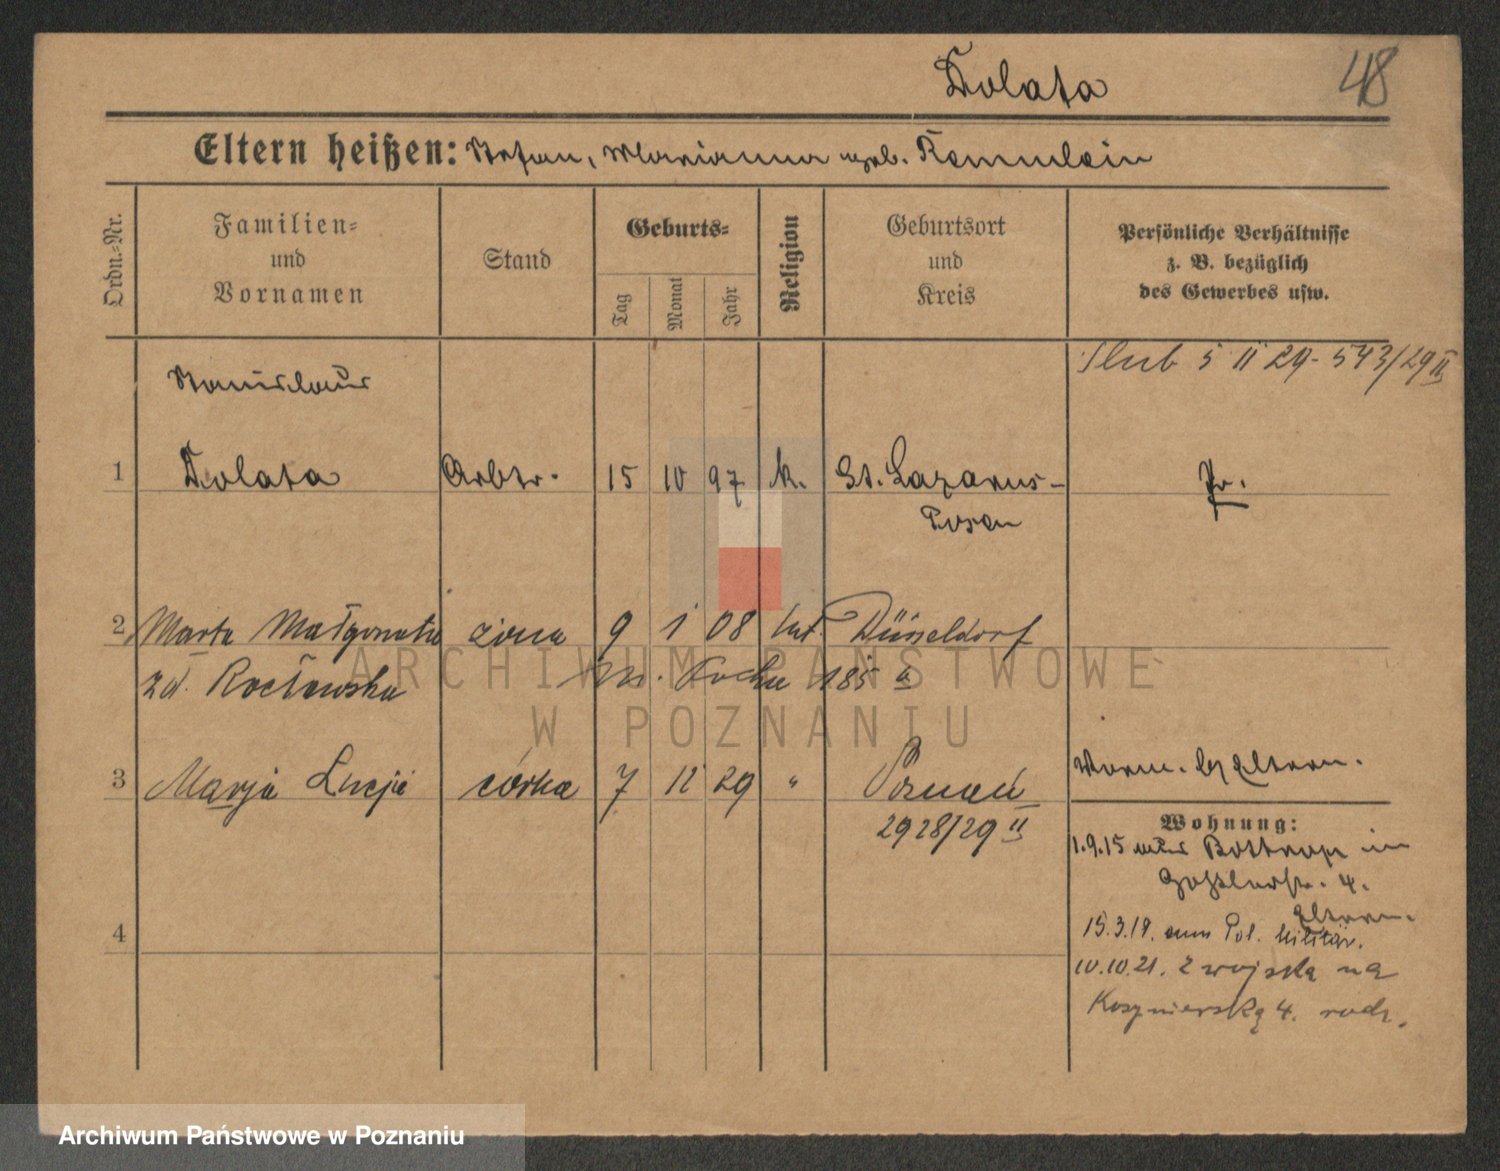 Dolata
48
Eltern heißen: Stefan, Marianna geb. Kemnlein
Ordn.=Nr.
Familien=
und
Vornamen
Stand
Geburts=
Tag
Monat
Jahr
Religion
Geburtsort
und
Kreis
Persönliche Verhältnisse
z. B. bezüglich
des Gewerbes usw.
Ślub 5 II 29 - 543/29 II
Stanislaus
1 Dolata Arbtr. 15 10 97 k. St. Lazarus-
Posen
Pr.
2 Marta Małgorzata żona 9 1 08 kat. Düsseldorf
zd. Rocławska 185 a
3 Marja Lucja córka 7 12 29 " Poznań
2928/29 II
Worm. b/ Eltern.
Wohnung:
1.9.15 aus Bottrop in
Goßlerstr. 4.
Eltern.
4
15.3.19. zum Pol. Militär.
10.10.21. z wojska na
Kosynierską 4. rodz.
ARCHIWUM PAŃSTWOWE
W POZNANIU
Archiwum Państwowe w Poznaniu